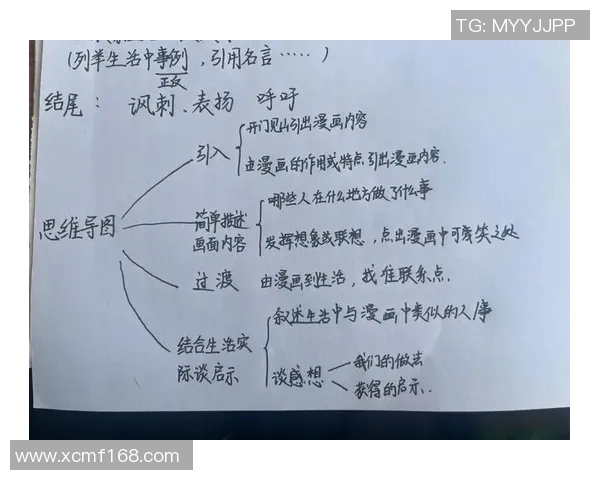 TG: MYYJJPP
(列举生活中事例,引用名言……)
正反
结尾: 讽刺、表扬 呼吁
开门见山引出漫画内容
引入
由漫画的作用或特点引出漫画内容.
哪些人在什么地方做了什么事
简单描述
画面内容
发挥想象或联想,点出漫画中可笑之处
思维导图
过渡 由漫画到生活,找准联系点.
叙述生活中与漫画中类似的人事
结合生活实
际谈启示
谈感想
我们的做法
获得的启示.
www.xcmf168.com